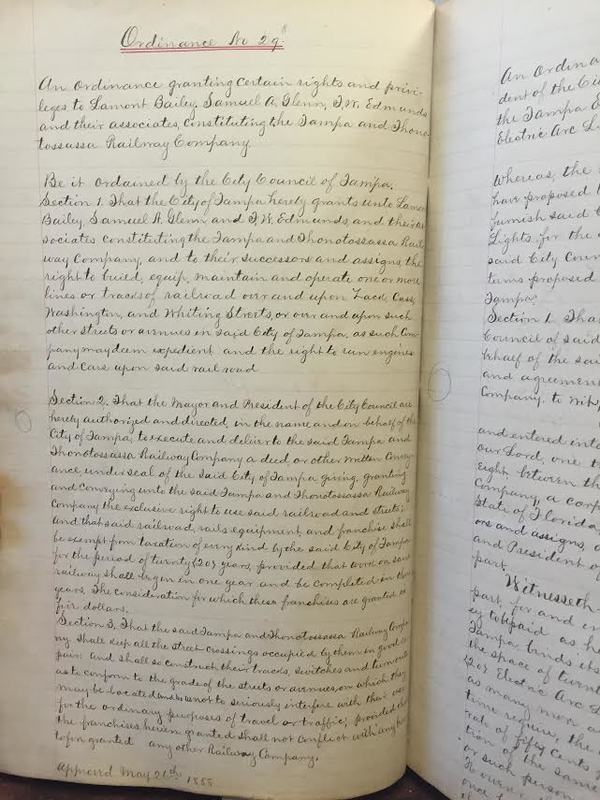 Ordinance No 29.
An Ordinance granting certain rights and privi-
leges to Lamont Bailey, Samuel A. Glenn, F.W. Edmunds
and their associates, constituting the Tampa and Thono-
tossassa Railway Company
Be it ordained by the City Council of Tampa.
Section 1. That the City of Tampa hereby grants unto Lamont
Bailey Samuel A. Glenn, and F.W. Edmunds, and their as
sociates constituting the Tampa and Thonotossassa Rail
way Company, and to their successors and assigns the
right to build, equip, maintain and operate one or more
lines or tracks of railroad over and upon Zack, Cass,
Washington, and Whiting Streets, or over and upon such
other streets or avenues in said City of Tampa, as such Com-
pany may deem expedient and the right to run engines
and cars upon said rail road
Section 2. That the Mayor and President of the City Council are
hereby authorized and directed, in the name and on behalf of the
City of Tampa, to execute and deliver to the said Tampa and
Thonotossassa Railway Company a deed, or other written convey-
ance under seal of the said City of Tampa giving, granting
and conveying unto the said Tampa and Thonotossassa Railway
Company the exclusive right to use said railroad and streets;
and that said railroad, rails equipment, and franchise shall
be exempt from taxation of every kind by the said City of Tampa
for the period of twenty (20) years, provided that work on said
railway shall begin in one year and be completed in
years. The consideration for which these franchises are granted is
five dollars.
Section 3. That the said Tampa and Thonotossassa Railway Compa
ny shall keep all the street crossings occupied by them in good re
pair and shall so construct their tracks, switches and turnouts
as to conform to the grade of the streets or avenues, on which they
may be located and so as not to seriously interfere with their use
for the ordinary purposes of travel or traffic; provided that
the franchises herein granted shall not conflict with any
granted any other Railway Company.
Approved May 21th 1888
An Ordin
dent of the Ci
the Tampa E
Electric Arc L
Whereas, the
have proposed t
furnish said C
Lights, for the
said City Coun
terms proposed
Tampa.
Section 1. That
Council of said
behalf of the sai
and agreement
Company, to wit,
and entered into
our Lord, one t
Eight, between th
Company, a corp
State of Florida,
ors and assigns, o
and President of
part.
Witnesseth-
part for and in
ey to be paid as he
Tampa binds its
the space of twent
(20) Electric Arc L
as many more as
time require, the
rate of fifty cents p
tion of the same
or such person